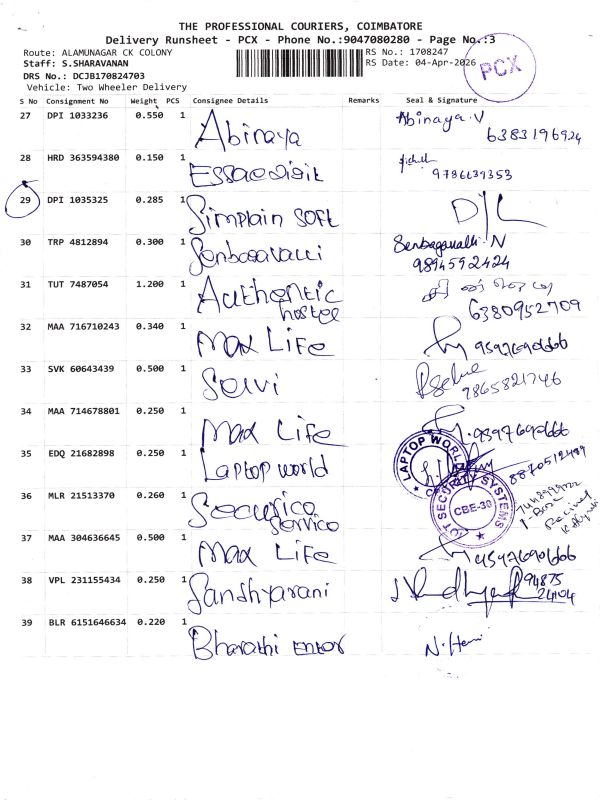 THE PROFESSIONAL COURIERS, COIMBATORE
Delivery Runsheet - PCX - Phone No.:9047080280 - Page No.:3
Route: ALAMUNAGAR CK COLONY
RS No.: 1708247
Staff: S.SHARAVANAN
RS Date: 04-Apr-2026
PCX
DRS No.: DCJB170824703
Vehicle: Two Wheeler Delivery
S No Consignment No Weight PCS Consignee Details Remarks Seal & Signature
27 DPI 1033236 0.550 1 Abinaya Abinaya.V
6383196924
28 HRD 363594380 0.150 1
9786639353
29 DPI 1035325 0.285 1 Simplain soft
30 TRP 4812894 0.300 1 Senbagavalli Senbagavalli.N
9894592424
31 TUT 7487054 1.200 1 Authentic
hostel
6380952709
32 MAA 716710243 0.340 1 Max Life
33 SVK 60643439 0.500 1 Selvi
9865821746
34 MAA 714678801 0.250 1 Max Life
35 EDQ 21682898 0.250 1 Laptop world
LAPTOP WORLD
8870512489
36 MLR 21513370 0.260 1 Securico
service
IOT SECURITY SYSTEMS
CBE-30
37 MAA 304636645 0.500 1 Max Life
38 VPL 231155434 0.250 1 Sandhyarani
94875
24104
39 BLR 6151646634 0.220 1 Bharathi Enter